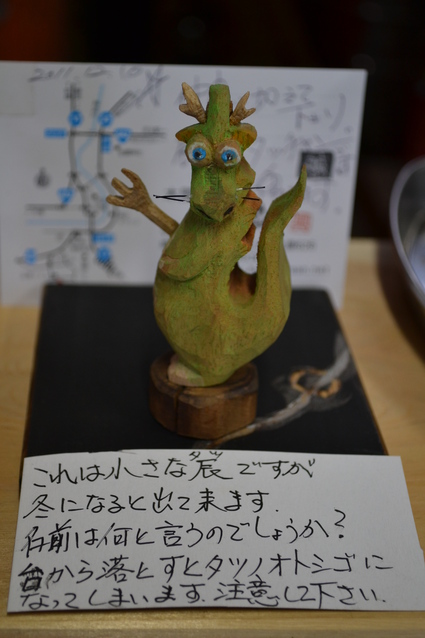 2011.12.10
加えて
下さり
タツ
これは小さな辰ですが
冬になると出て来ます.
名前は何と言うのでしょうか?
台から落とすとタツノオトシゴに
なってしまいます.注意して下さい.